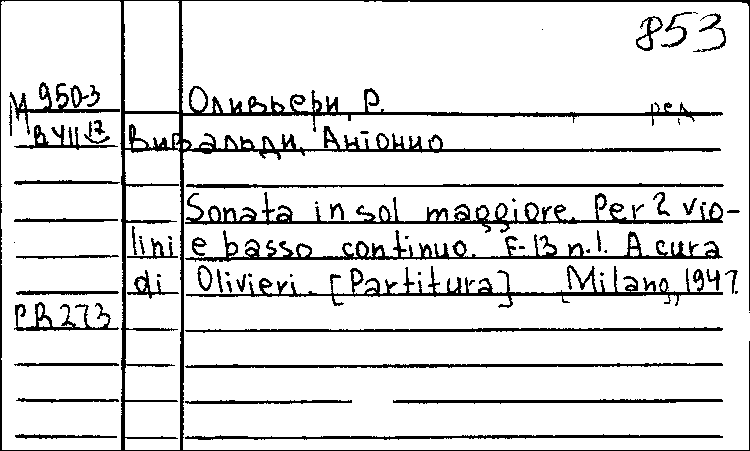 853
М 950-3 Оливьери, Р. ред
В VII 12 Вивальди, Антонио
Sonata in sol maggiore. Per 2 vio-
lini e basso continuo. F-13 n.1. A cura
di Olivieri. [Partitura] [Milano, 1947.
РВ 273